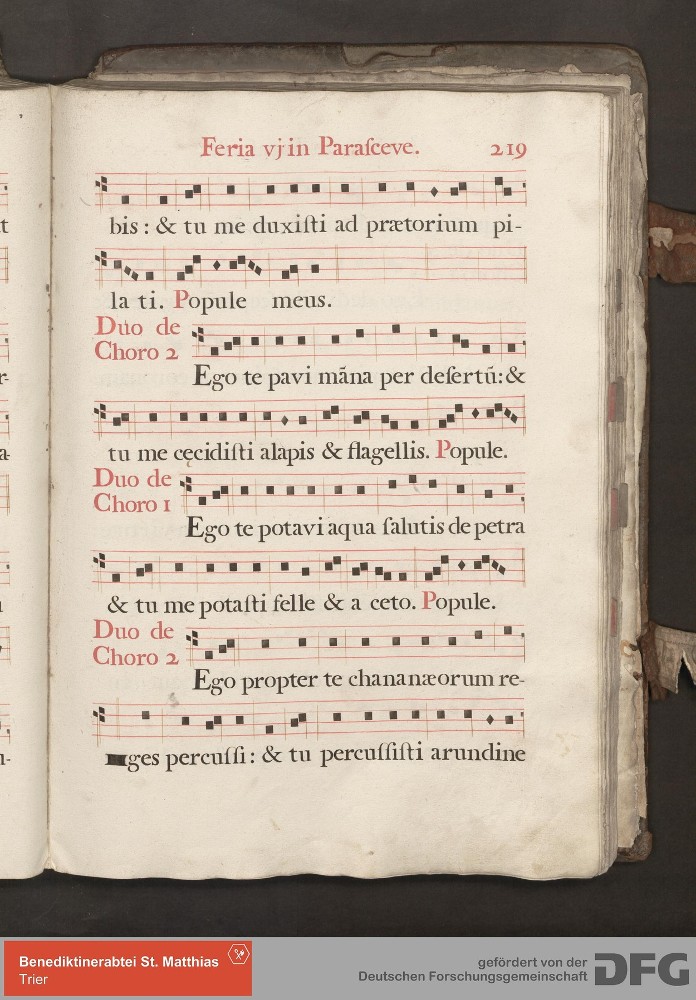 Feria vj in Paraſceve. 219
bis : & tu me duxiſti ad prætorium pi-
la ti. Popule meus.
Duo de
Choro 2
Ego te pavi mãna per deſertũ: &
tu me cecidiſti alapis & flagellis. Popule.
Duo de
Choro 1
Ego te potavi aqua ſalutis de petra
& tu me potaſti felle & a ceto. Popule.
Duo de
Choro 2
Ego propter te chananæorum re-
ges percuſſi : & tu percuſſiſti arundine
Benediktinerabtei St. Matthias
Trier
gefördert von der
Deutschen Forschungsgemeinschaft
DFG